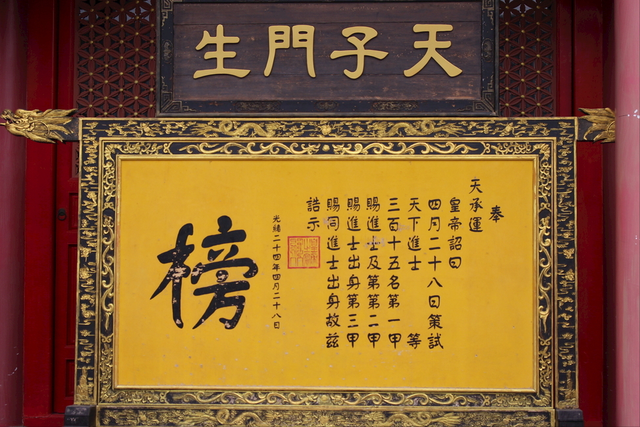 天子門生
奉
天承運
皇帝詔曰
四月二十八日策試
天下進士 等
三百十五名第一甲
賜進士及第第二甲
賜進士出身第三甲
賜同進士出身故茲
誥示
光緒二十四年四月二十八日
榜